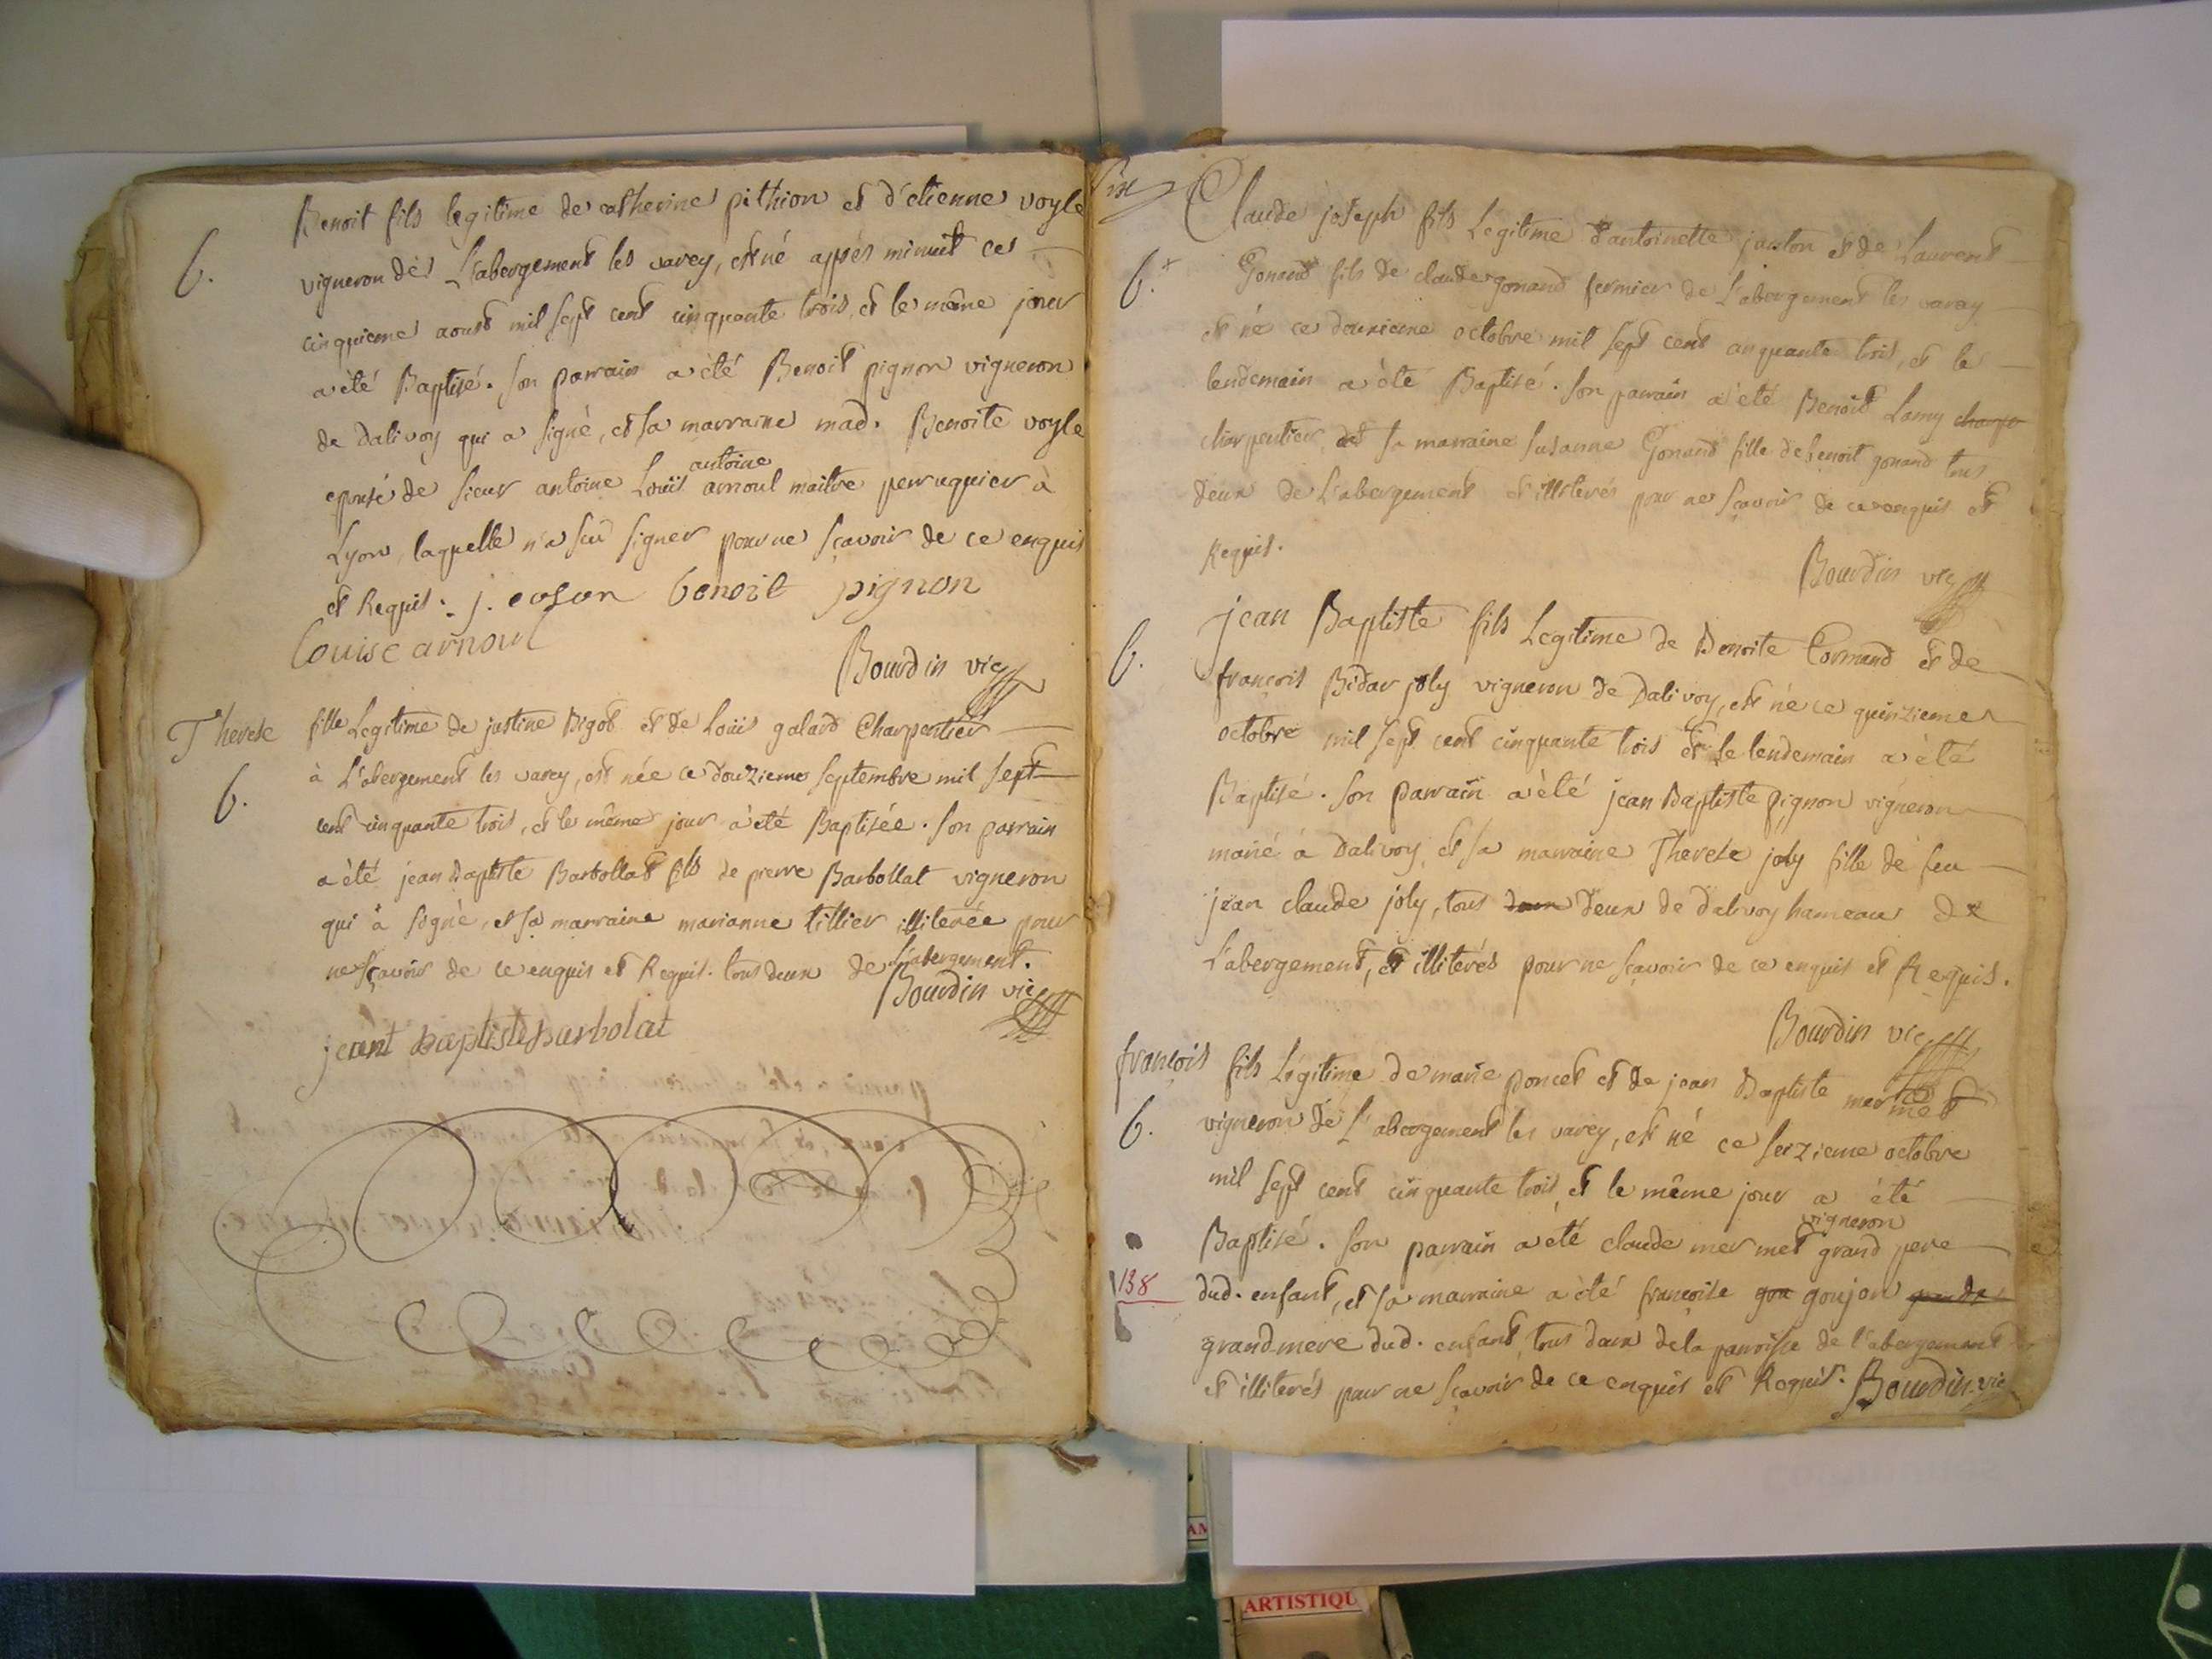 Benoit fils legitime de catherine pithion et d'etienne voyle
b.
vigneron dès L'abergement les varey, est né apprès minuit ce
cinquieme aoust mil sept cent cinquante trois, et le même jour
a été Baptisé. son parrain a été Benoit pignon vigneron
de dalivoy qui a signé, et sa marraine mad. Benoite voyle
antoine
epouse de sieur antoine Louis arnoul maitre perruquier à
Lyon, laquelle n'a scu signer pour ne sçavoir de ce enquis
et Requis. j. benoit pignon
Louise arnoul
Bourdin vic
Therese fille Legitime de justine Bigot et de Louis galard Charpentier
à L'abergement les varey, est née ce douzieme septembre mil sept
b.
cent cinquante trois, et le même jour a été Baptisée. son parrain
a été jean Baptiste Barbollat fils de pierre Barbollat vigneron
qui à signé, et sa marraine marianne tillier illiterée pour
ne sçavoir de ce enquis et Requis. tous deux de L'abergement.
Bourdin vic
jeant baptiste barbolat
Claude joseph fils Legitime d'antoinette juston et de Laurent
b.
Gonand fils de claude gonand fermier de L'abergement les varey
est né ce douzieme octobre mil sept cent cinquante trois, et le
lendemain a été Baptisé. son parrain a été Benoît Lamy
charpentier et sa marraine susanne Gonand fille de benoit gonand tous
deux de L'abergement et illiterés pour ne sçavoir de ce enquis et
Requis.
Bourdin vic
jean Baptiste fils Legitime de Benoite Cormand et de
b.
françois Bidar joly vigneron de Dalivoy, est né ce quinzieme
octobre mil sept cent cinquante trois et le lendemain a été
Baptisé. son parrain a été jean Baptiste pignon vigneron
marié à Dalivoy, et sa marraine Therese joly fille de feu
jean claude joly, tous deux de dalivoy hameau de
L'abergement, et illiterés pour ne sçavoir de ce enquis et Requis.
Bourdin vic
françois fils Légitime de marie poncet et de jean Baptiste mermet
b.
vigneron de L'abergement les varey, est né ce seizieme octobre
mil sept cent cinquante trois, et le même jour a été
vigneron
Baptisé. son parrain a été claude mermet grand pere
138
dud. enfant, et sa marraine a été françoise gou goujon
grandmere dud. enfant, tous deux de la parroisse de l'abergement
et illiterés pour ne sçavoir de ce enquis et Requis. Bourdin vic
ARTISTIQU